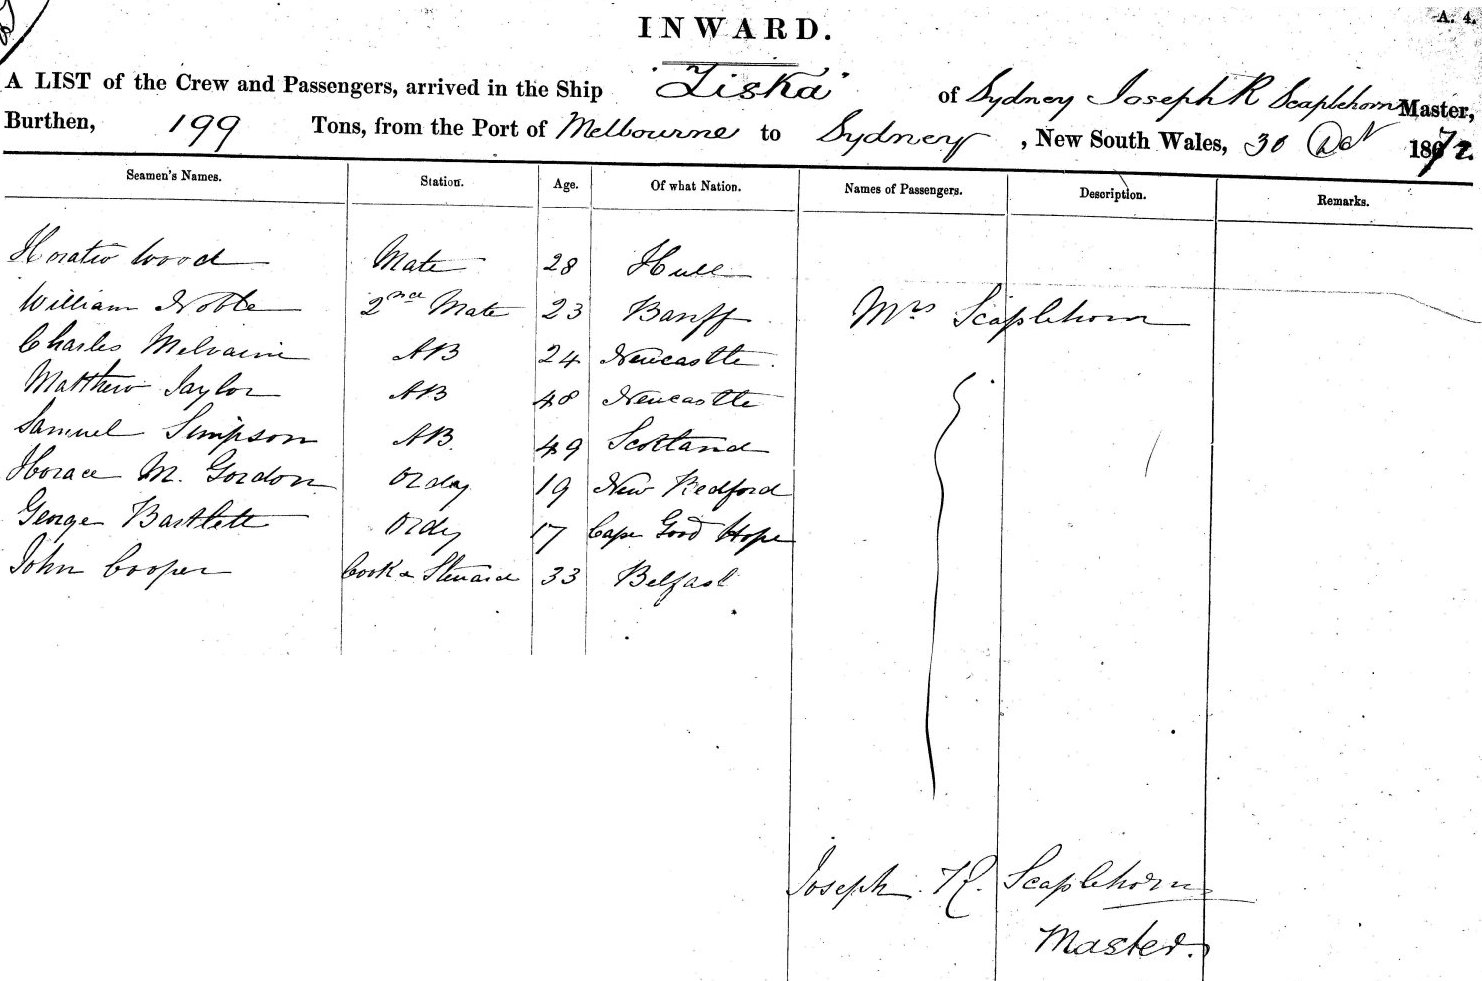 A. 4.
INWARD.
A LIST of the Crew and Passengers, arrived in the Ship "Ziska" of Sydney Joseph R Scaplehorn Master,
Burthen, 199 Tons, from the Port of Melbourne to Sydney, New South Wales, 30 Oct 1872.
Seamen's Names. Station. Age. Of what Nation. Names of Passengers. Description. Remarks.
Horatio Wood Mate 28 Hull
William Noble 2nd Mate 23 Banff Mrs Scaplehorn
Charles AB 24 Newcastle
Matthew Taylor AB 48 Newcastle
Samuel Simpson AB 49 Scotland
Horace M. Gordon Orday 19 New Bedford
George Bartlett Ordy 17 Cape Good Hope
John Cooper Cook & Steward 33 Belfast
Joseph R. Scaplehorn
Master.